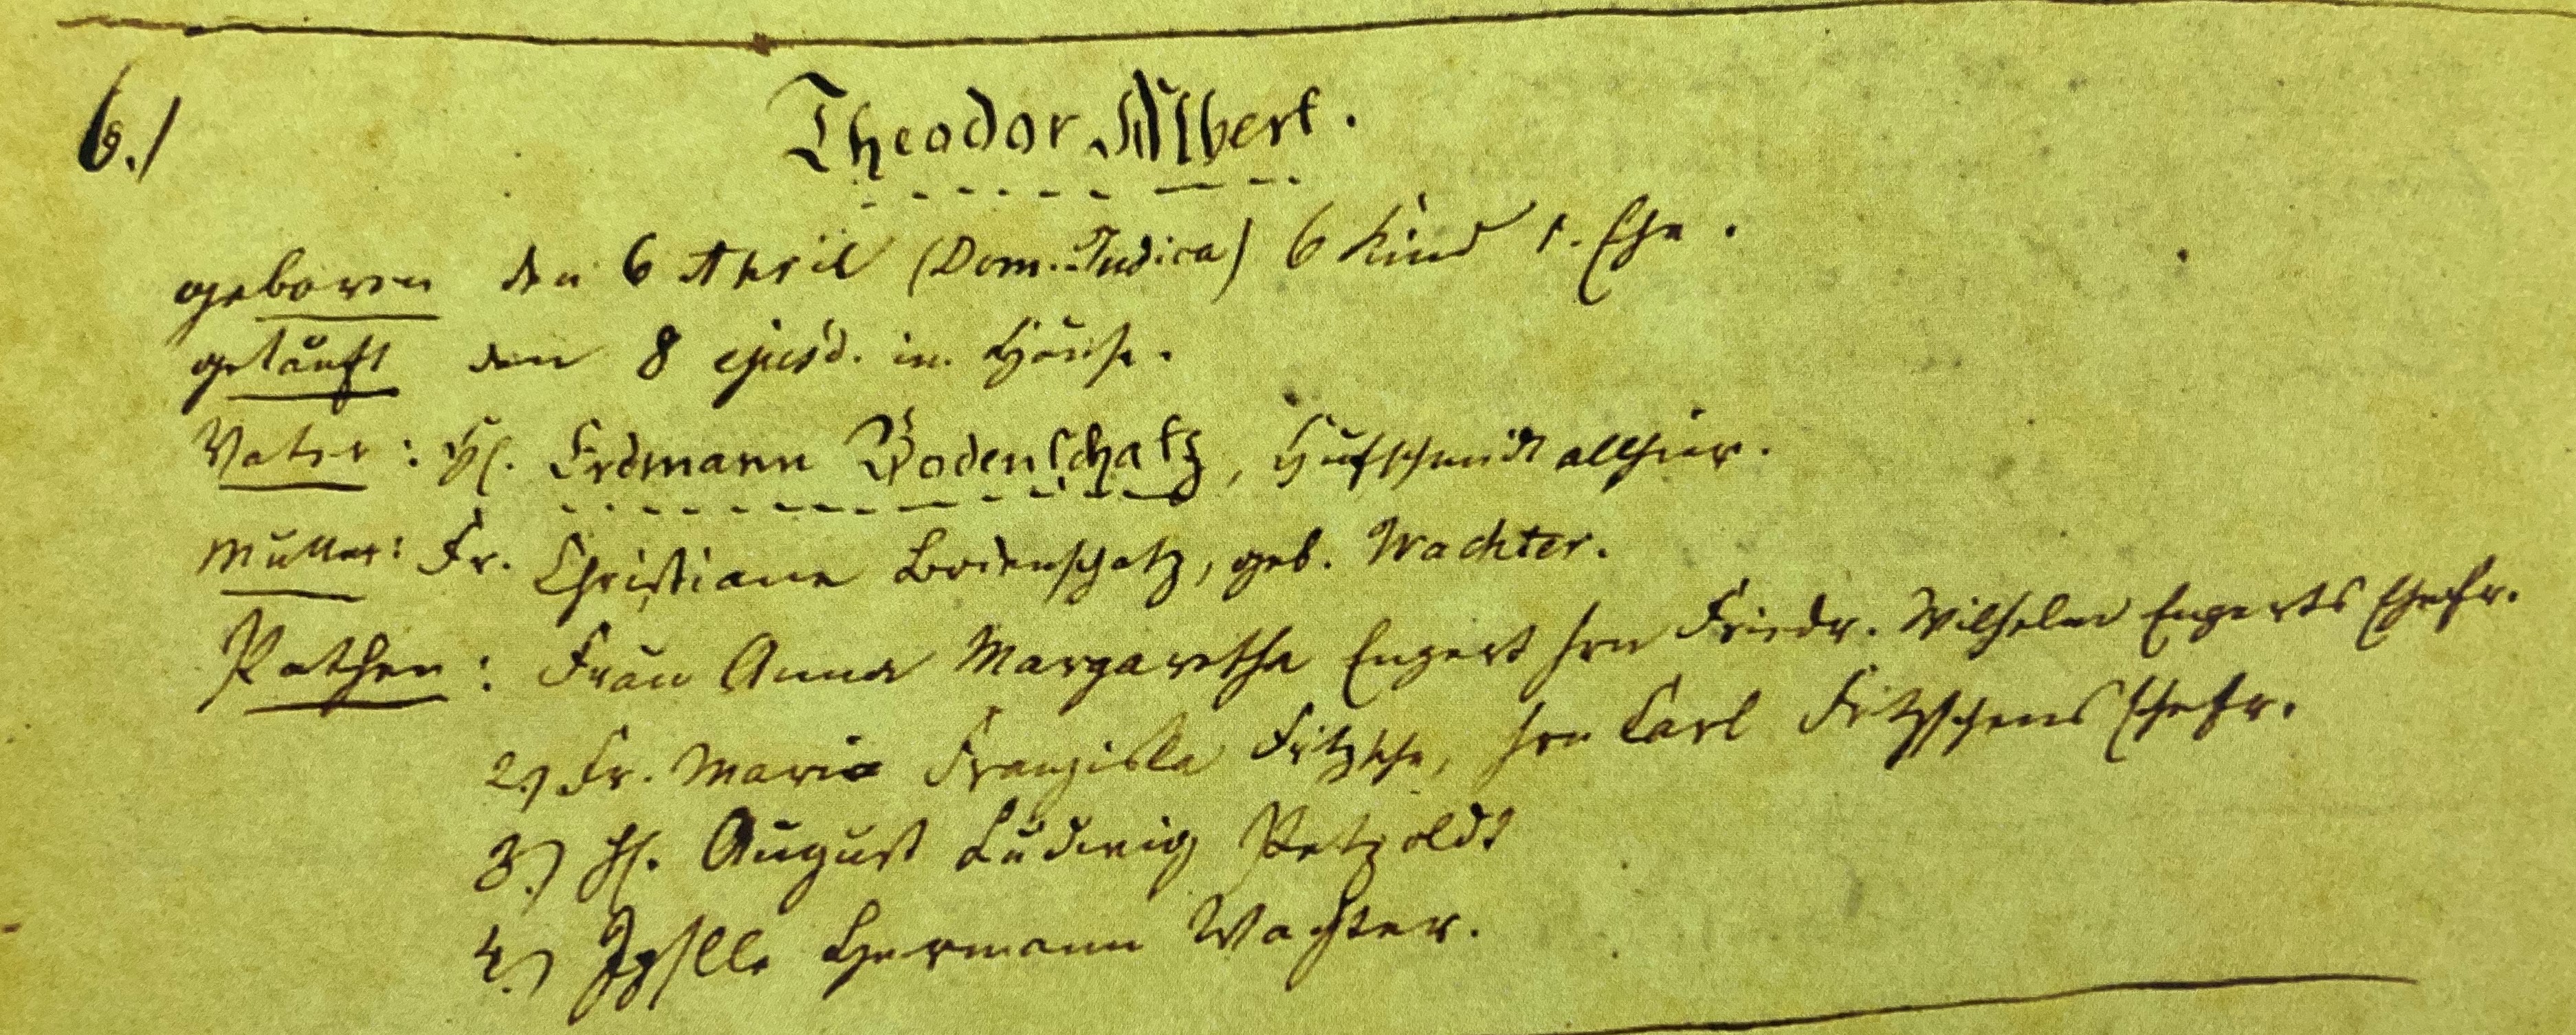 6./
Theodor Albert.
geboren den 6 April (Dom. Judica) 6 Kind 1. Ehe.
getauft den 8 ejusd. in. Hause.
Vater: H. Erdmann Bodenschatz, Hufschmidt allhier.
Mutter: Fr. Christiane Bodenschatz, geb. Wachter.
Pathen: Frau Anna Margaretha Engert Hrn Friedr. Wilhelm Engerts Ehefr.
2.) Fr. Maria Franziska Fritzsche, Hrn Carl Fritzschens Ehefr.
3.) H. August Ludwig Petzoldt
4.) Jggslle Hermann Wachter.